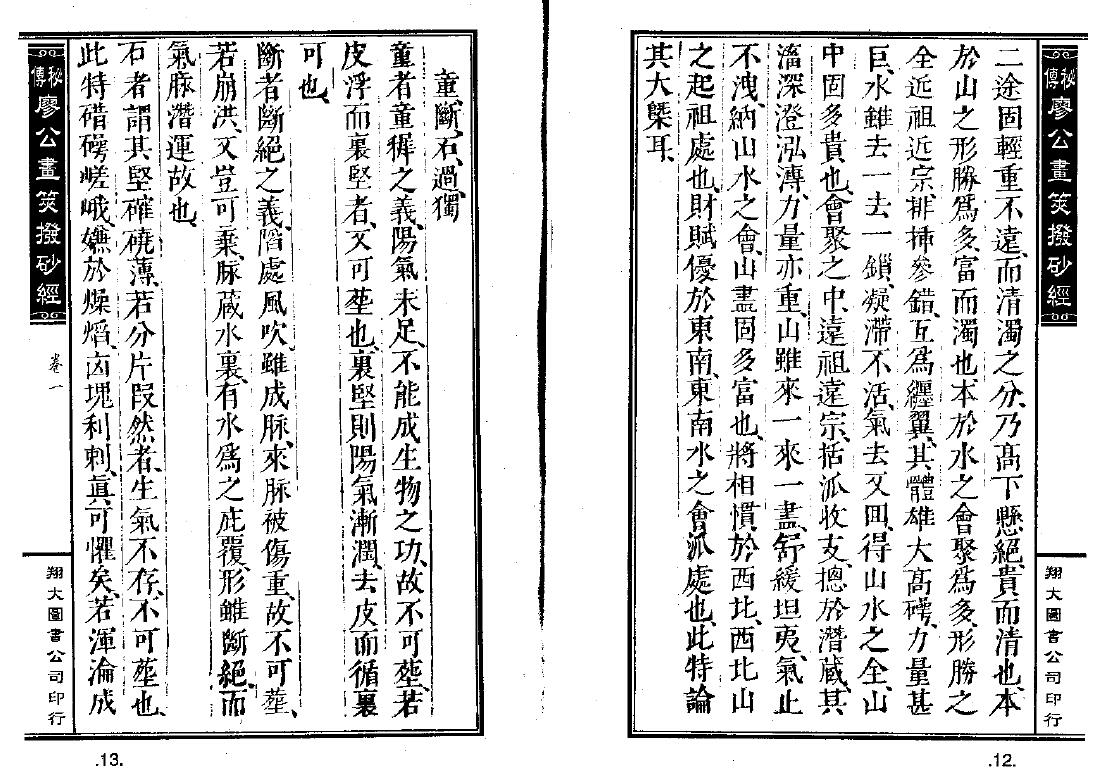 秘傳廖公畫筴撥砂經
二途固輕重不遠、而清濁之分、乃高下懸絕、貴而清也、本
於山之形勝為多、富而濁也、本於水之會聚為多、形勝之
全、近祖近宗、排揷參錯、互為纒翼、其體雄大高礴、力量甚
巨、水雖去一去一鎖、凝滯不活、氣去又囬、得山水之全、山
中固多貴也、會聚之中、遠祖遠宗、括派收支、摠於潛蔵、其
滀深澄泓漙、力量亦重、山雖來一來一盡、舒緩坦夷、氣止
不洩、納山水之會、山盡固多富也、將相慣於西北、西北山
之起祖處也、財賦優於東南、東南水之會派處也、此特論
其大槩耳、
翔大圖書公司印行
.12.
童、斷、石、過、獨
童者童穉之義、陽氣未足、不能成生物之功、故不可塟、若
皮浮而裏堅者、又可塟也、裏堅則陽氣漸潤、去皮而循裏
可也、
斷者斷絕之義、陷處風吹、雖成脉、來脉被傷重、故不可塟、
若崩洪、又豈可棄、脉蔵水裏、有水為之庇覆、形雖斷絕、而
氣脉潛運故也、
石者謂其堅確磽薄、若分片叚然者、生氣不存、不可塟也、
此特磛礴嵯峨、嫌於燥熖、凶塊利刺、眞可懼矣、若渾淪成
秘傳廖公畫筴撥砂經
卷一
翔大圖書公司印行
.13.